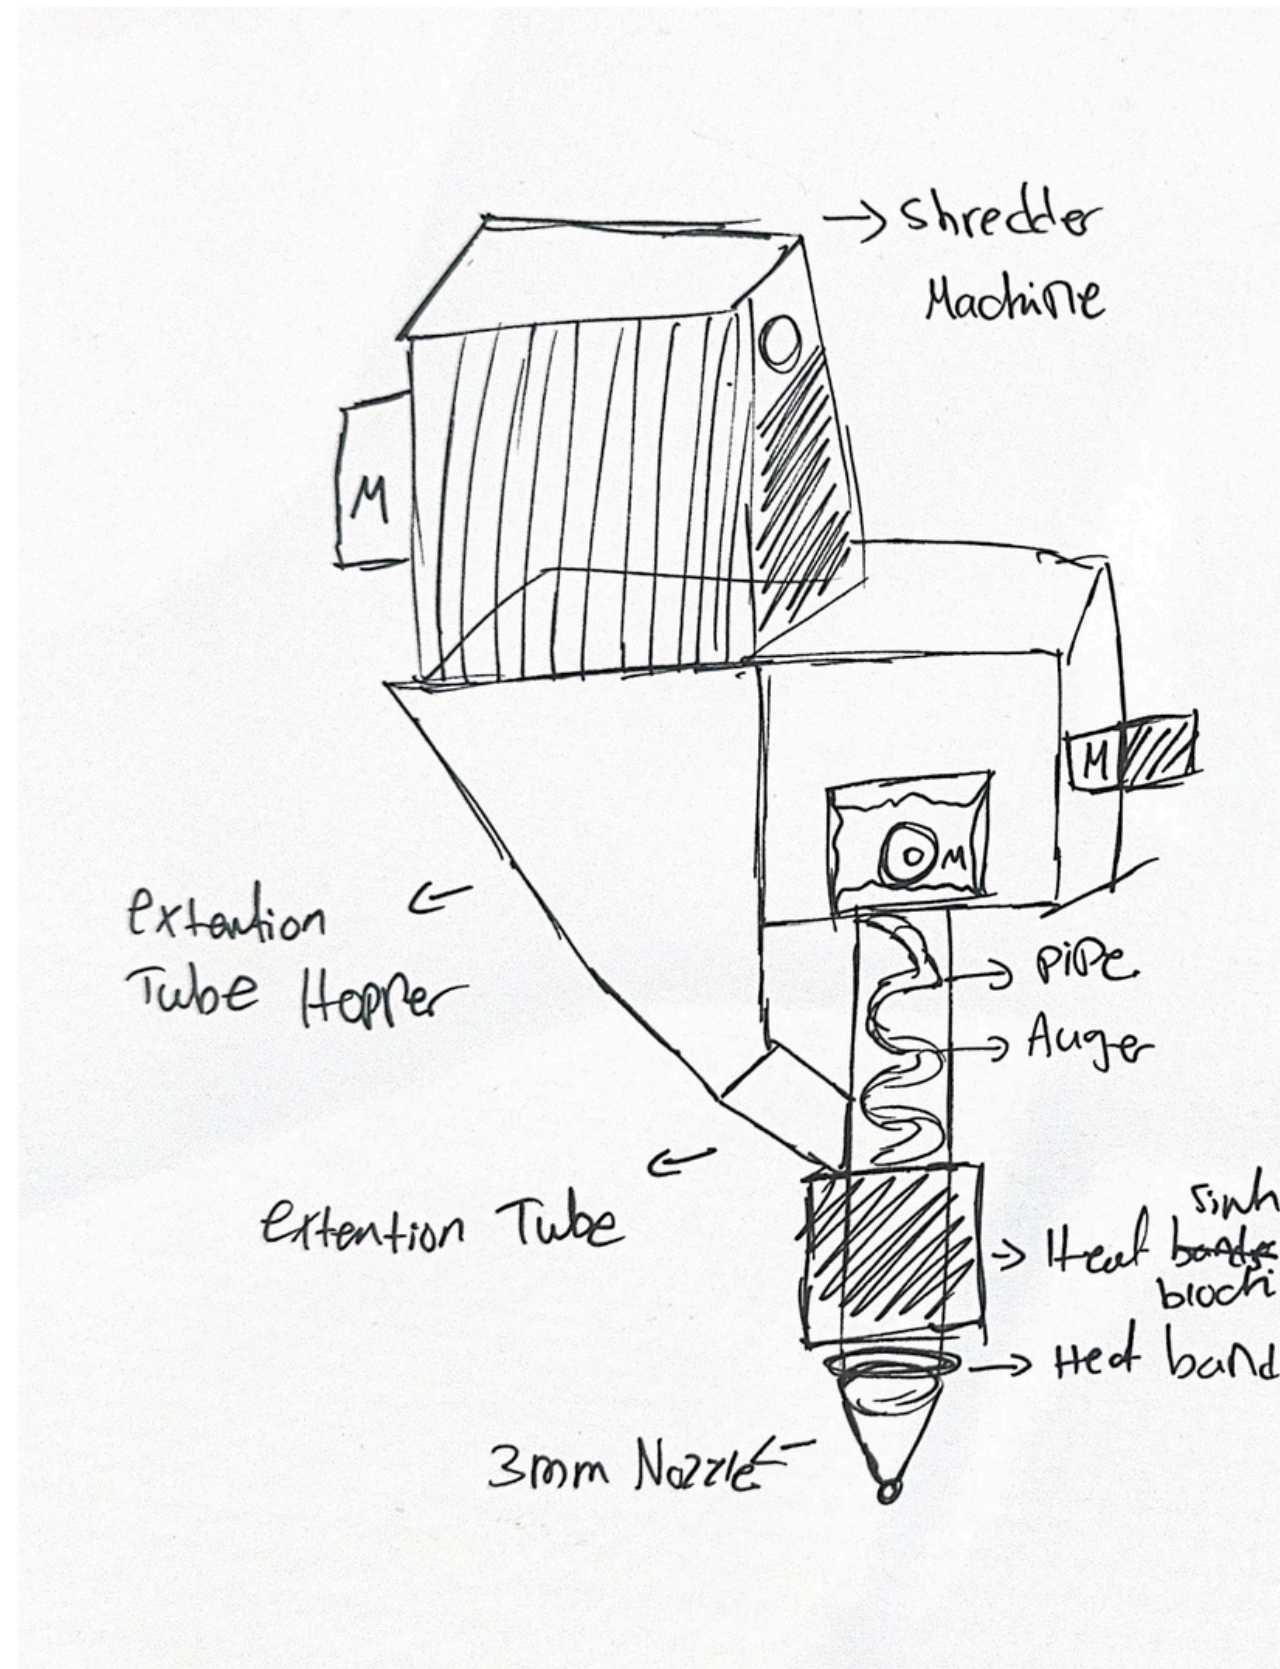 Shredder
Machine
M
M
M
extention
Tube Hopper
Pipe
Auger
extention Tube
sink
Heat bands
block
Heat band
3mm Nozzle